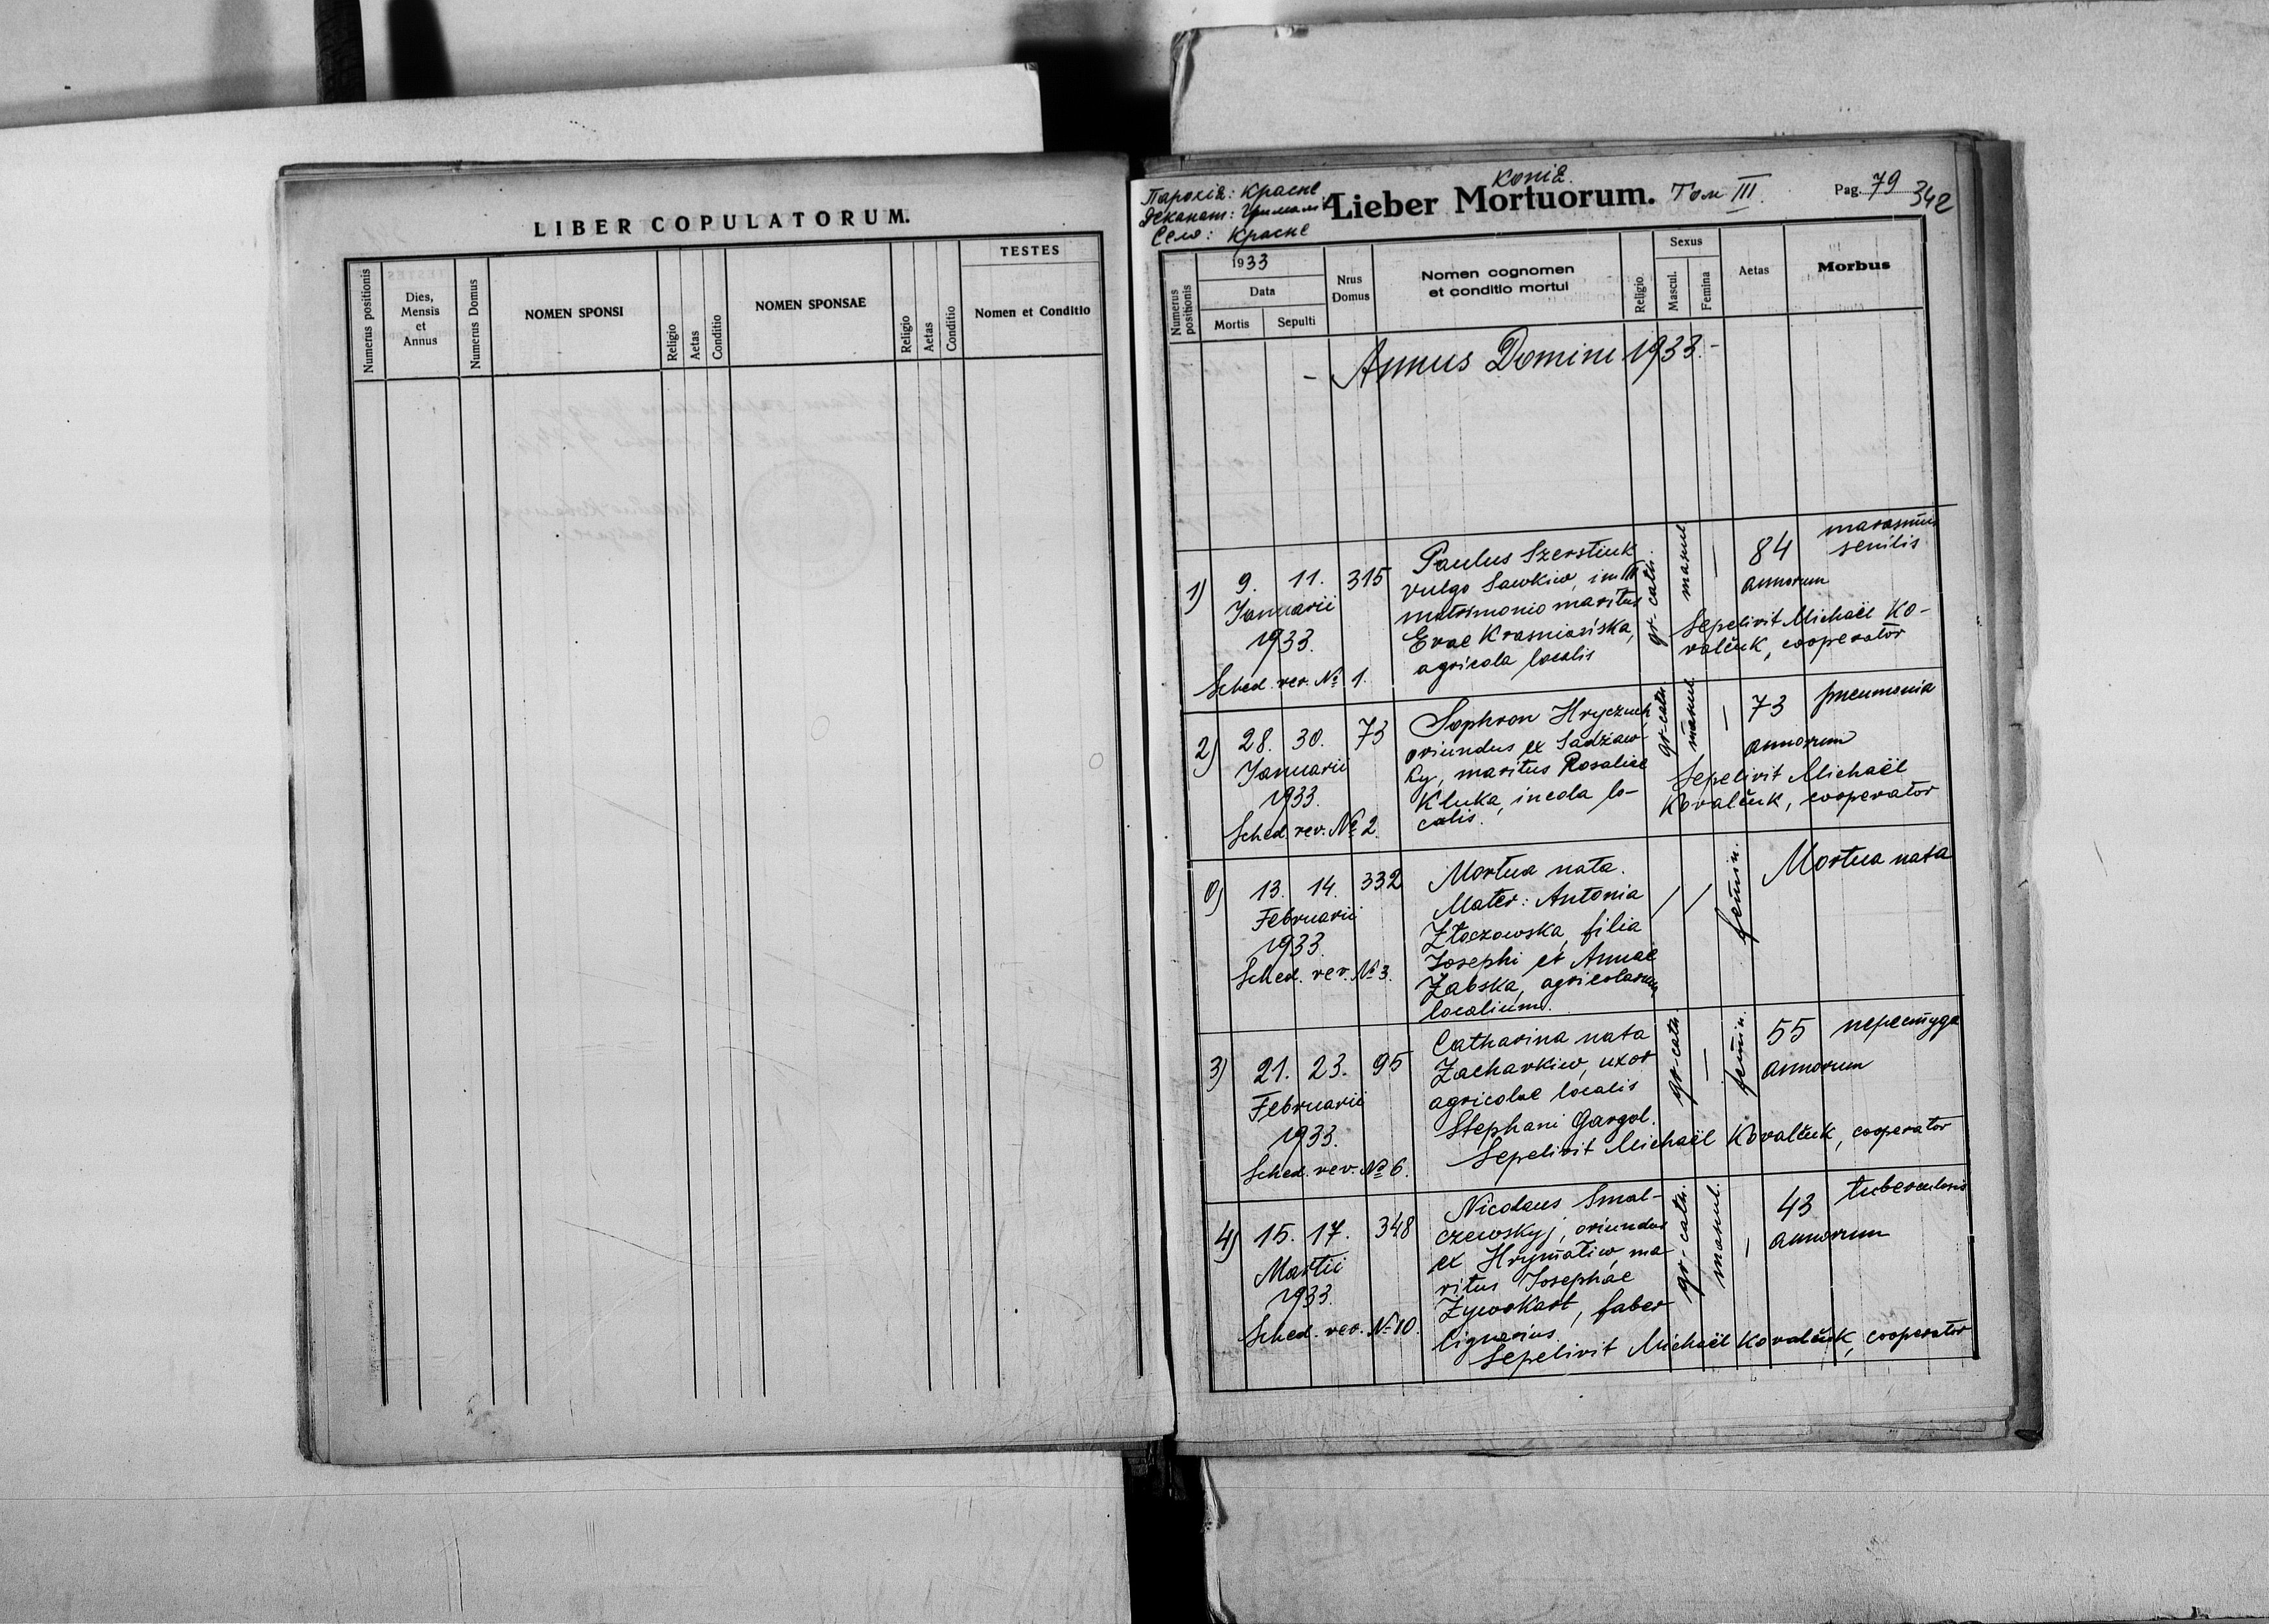 LIBER COPULATORUM.
Numerus positionis
Dies,
Mensis
et
Annus
Numerus Domus
NOMEN SPONSI
Religio
Aetas
Conditio
NOMEN SPONSAE
Religio
Aetas
Conditio
TESTES
Nomen et Conditio
Парохія: Красне
Деканат:
Село: Красне
Копія
Lieber Mortuorum. Том III.
Pag. 79
342
Numerus positionis
1933
Data
Mortis
Sepulti
Nrus
Domus
Nomen cognomen
et conditio mortui
Religio
Sexus
Mascul.
Femina
Aetas
Morbus
- Annus Domini 1933.-
1) 9. 11. 315
Januarii
1933.
Sched. rev. № 1.
Paulus Szerstiuk
vulgo Sawkiw, in III
matrimonio maritus
Evae Krasniańska,
agricola localis
gr-cath.
mascul
—
84
annorum
marasmus
senilis
Sepelivit Michaël Ko-
valčuk, cooperator
2) 28. 30. 73
Januarii
1933.
Sched. rev. № 2.
Sophron Hryczuch
oriundus ex Sadżaw-
ky, maritus Rosaliae
Kluka, incola lo-
calis.
gr-cath.
mascul.
—
73
annorum
pneumonia
Sepelivit Michaël
Kovalčuk, cooperator
0) 13. 14. 332
Februarii
1933.
Sched. rev. № 3.
Mortua nata.
Mater: Antonia
Złoczowska, filia
Josephi et Annae
Zabska, agricolarum
localium.
femin.
Mortua nata
3) 21. 23. 95
Februarii
1933.
Sched. rev. № 6.
Catharina nata
Zacharkiw, uxor
agricolae localis
Stephani Gargol.
gr-cath.
—
femin.
55
annorum
перестуда
Sepelivit Michaël Kovalčuk, cooperator
4) 15. 17. 348
Martii
1933.
Sched. rev. № 10.
Nicolaus Smal-
czewskyj, oriundus
ex Hrymałiw, ma-
ritus Josephae
Zywokart, faber
lignarius.
gr-cath.
mascul.
—
43
annorum
tuberculosis
Sepelivit Michaël Kovalčuk, cooperator